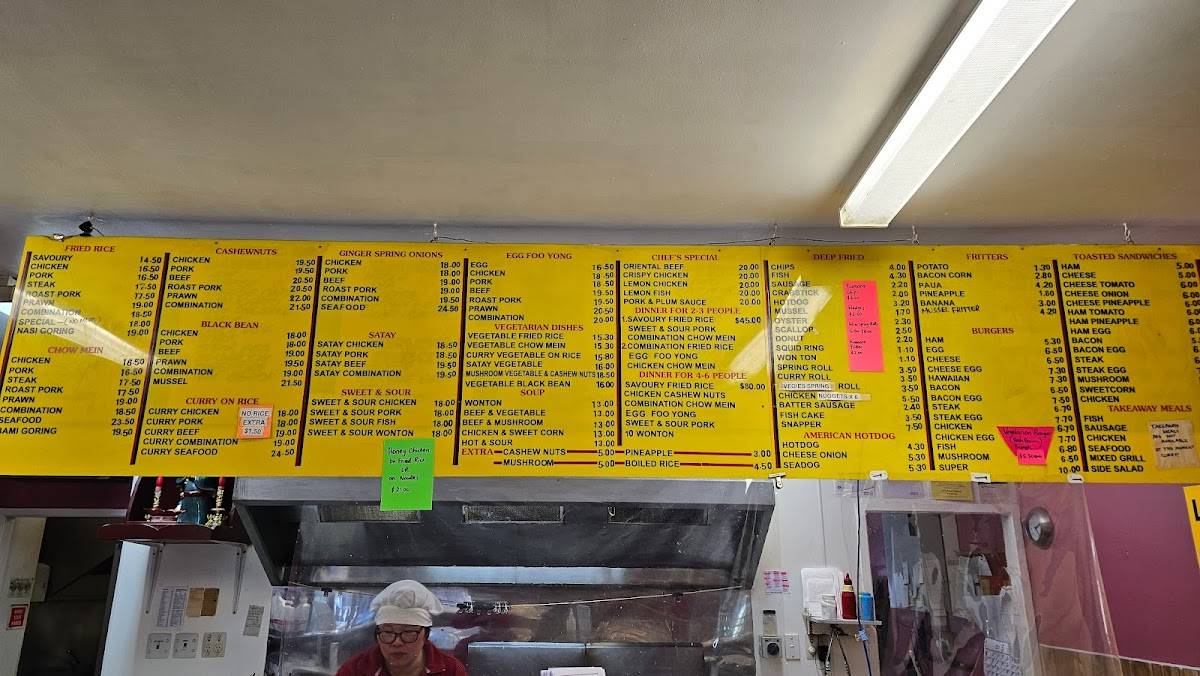 FRIED RICE
SAVOURY 14.50
CHICKEN 16.50
PORK 16.50
STEAK 17.50
ROAST PORK 17.50
PRAWN 19.00
COMBINATION 18.50
SPECIAL 18.00
NASI GORING 19.00
CHOW MEIN
CHICKEN 16.50
PORK 16.50
STEAK 17.50
ROAST PORK 17.50
PRAWN 19.00
COMBINATION 18.50
SEAFOOD 23.50
BAMI GORING 19.50
CASHEWNUTS
CHICKEN 19.50
PORK 19.50
BEEF 20.50
ROAST PORK 20.50
PRAWN 22.00
COMBINATION 21.50
BLACK BEAN
CHICKEN 18.00
PORK 18.00
BEEF 19.00
PRAWN 19.50
COMBINATION 19.50
MUSSEL 21.50
CURRY ON RICE
CURRY CHICKEN 18.00
CURRY PORK 18.00
CURRY BEEF 19.00
CURRY COMBINATION 19.00
CURRY SEAFOOD 24.50
NO RICE
EXTRA
$1.50
GINGER SPRING ONIONS
CHICKEN 18.00
PORK 18.00
BEEF 19.00
ROAST PORK 19.00
COMBINATION 19.50
SEAFOOD 24.50
SATAY
SATAY CHICKEN 18.50
SATAY PORK 18.50
SATAY BEEF 19.50
SATAY COMBINATION 19.50
SWEET & SOUR
SWEET & SOUR CHICKEN 18.00
SWEET & SOUR PORK 18.00
SWEET & SOUR FISH 18.00
SWEET & SOUR WONTON 18.00
Honey Chicken
on Fried Rice
OR
on Noodles
$21.00
EGG FOO YONG
EGG 16.50
CHICKEN 18.50
PORK 18.50
BEEF 19.50
ROAST PORK 19.50
PRAWN 20.50
COMBINATION 20.00
VEGETARIAN DISHES
VEGETABLE FRIED RICE 15.30
VEGETABLE CHOW MEIN 15.30
CURRY VEGETABLE ON RICE 15.80
SATAY VEGETABLE 16.00
MUSHROOM VEGETABLE & CASHEW NUTS 18.50
VEGETABLE BLACK BEAN 16.00
SOUP
WONTON 13.00
BEEF & VEGETABLE 13.00
BEEF & MUSHROOM 13.00
CHICKEN & SWEET CORN 13.00
HOT & SOUR 13.00
EXTRA CASHEW NUTS 5.00 PINEAPPLE 3.00
MUSHROOM 5.00 BOILED RICE 4.50
CHEF'S SPECIAL
ORIENTAL BEEF 20.00
CRISPY CHICKEN 20.00
LEMON CHICKEN 20.00
LEMON FISH 20.00
PORK & PLUM SAUCE 20.00
DINNER FOR 2-3 PEOPLE
1.SAVOURY FRIED RICE $45.00
SWEET & SOUR PORK
COMBINATION CHOW MEIN
2.COMBINATION FRIED RICE
EGG FOO YONG
CHICKEN CHOW MEIN
DINNER FOR 4-6 PEOPLE
SAVOURY FRIED RICE $80.00
CHICKEN CASHEW NUTS
COMBINATION CHOW MEIN
EGG FOO YONG
SWEET & SOUR PORK
10 WONTON
DEEP FRIED
CHIPS 4.00
FISH 4.30
SAUSAGE
CRABSTICK
HOTDOG
MUSSEL
OYSTER
SCALLOP
DONUT
SQUID RING
WON TON
SPRING ROLL
CURRY ROLL
VEGIES SPRING ROLL
CHICKEN NUGGETS X 6
BATTER SAUSAGE
FISH CAKE
SNAPPER 7.50
AMERICAN HOTDOG
HOTDOG 4.30
CHEESE ONION 5.30
SEADOG 5.30
FRITTERS
POTATO 1.30
BACON CORN 2.80
PAUA 4.20
PINEAPPLE 1.80
BANANA 3.00
MUSSEL FRITTER 4.20
BURGERS
HAM 5.30
EGG
CHEESE
CHEESE EGG
HAWAIIAN
BACON
BACON EGG
STEAK
STEAK EGG
CHICKEN
CHICKEN EGG
FISH
MUSHROOM
SUPER 10.00
TOASTED SANDWICHES
HAM 5.00
CHEESE
CHEESE TOMATO
CHEESE ONION
CHEESE PINEAPPLE
HAM TOMATO
HAM PINEAPPLE
HAM EGG
BACON
BACON EGG
STEAK
STEAK EGG
MUSHROOM
SWEETCORN
CHICKEN
TAKEAWAY MEALS
FISH
SAUSAGE
CHICKEN
SEAFOOD
MIXED GRILL
SIDE SALAD